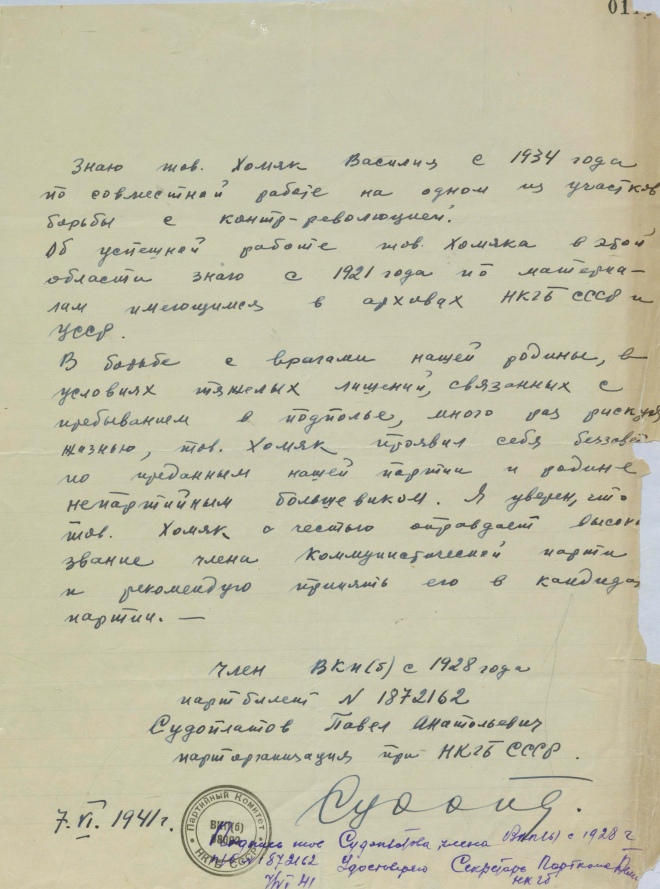 01
Знаю тов. Хомяк Василия с 1934 года
по совместной работе на одном из участков
борьбы с контр-революцией.
Об успешной работе тов. Хомяка в этой
области знаю с 1921 года по материа-
лам имеющимся в архивах НКГБ СССР и
УССР.
В борьбе с врагами нашей родины, в
условиях тяжелых лишений, связанных с
пребыванием в подполье, много раз рискуя
жизнью, тов. Хомяк проявил себя беззавет
но преданным нашей партии и родине
непартийным большевиком. Я уверен, что
тов. Хомяк с честью оправдает высок
звание члена Коммунистической парти
и рекомендую принять его в кандида
партии. —
Член ВКП(б) с 1928 года
партбилет N 1872162
Судоплатов Павел Анатольевич
парторганизация при НКГБ СССР.
7.VI. 1941 г.
Партийный Комитет
ВКП(б)
НКГБ СССР
Подпись тов Судоплатова члена ВКП(б) с 1928 г
п/б 1872162 Удостоверяю Секретарь Парткома
7/VI 41 НКГБ